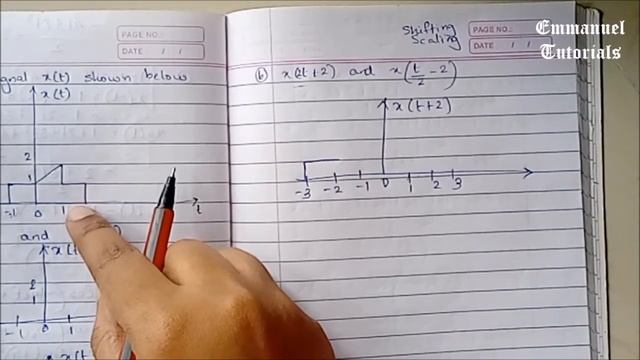 PAGE NO.:
DATE / /
gnal x(t) shown below
x(t)
2
1
-1 0 1
t
and
x(t
2
1
-1 0 1
x(t
Shifting
Scaling
PAGE NO.:
DATE / /
Emmanuel
Tutorials
(b) x(2t+2) and x(t/2 - 2)
x(t+2)
-3 -2 -1 0 1 2 3